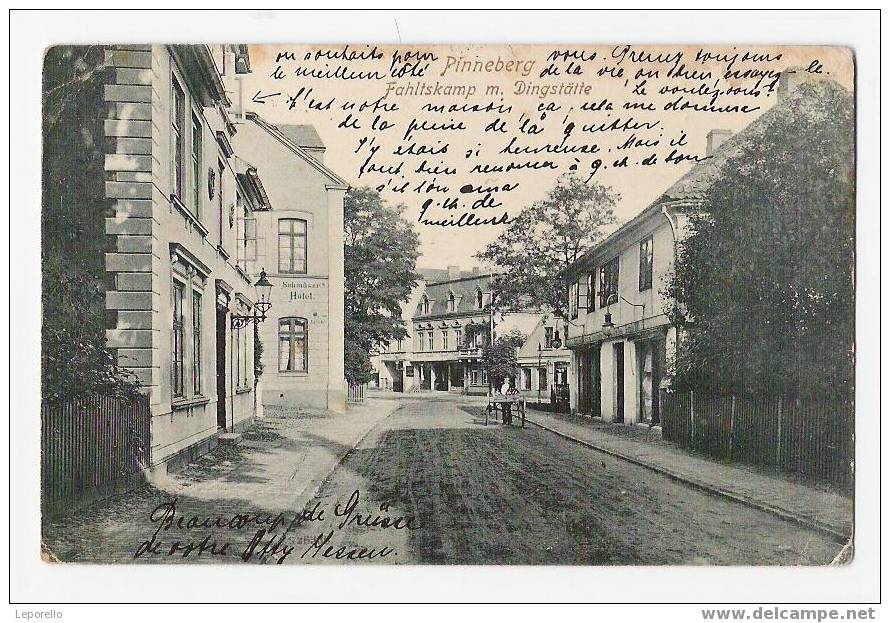 on souhaits pour vous. Prenez toujours
le meilleur côté de la vie, on bien, essayez-le.
Pinneberg
Le voulez-vous?
Fahltskamp m. Dingstätte
C'est notre maison ça, cela me donne
de la peine de la quitter.
J'y étais si heureuse. Mais il
faut bien renoncer à q. ch. de bon
s'il l'on ama
q. ch. de
meilleur
Schmüser's
Hotel
Beaucoup de Grüsse
de votre Offy Jessen.
Leporello
www.delcampe.net